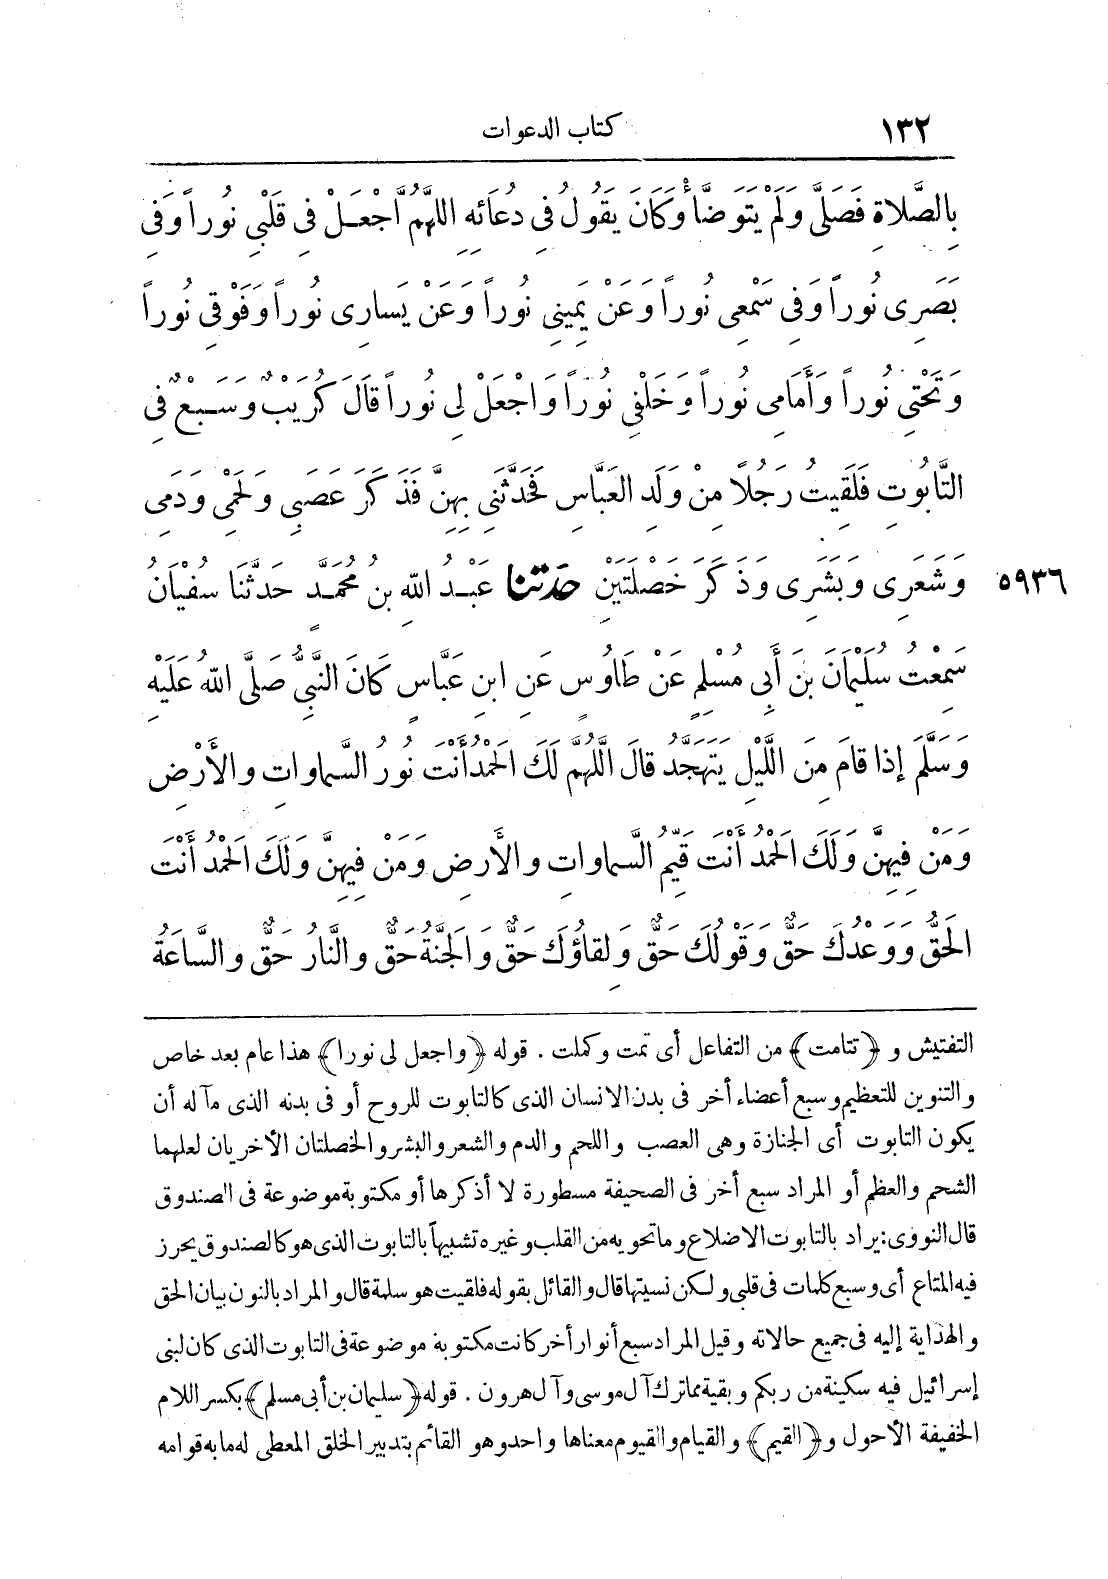 ١٣٢ كتاب الدعوات
بِالصَّلاةِ فَصَلَّى وَلَمْ يَتَوَضَّأْ وَكَانَ يَقُولُ فِى دُعَائِهِ اللَّهُمَّ اجْعَلْ فِى قَلْبِى نُوراً وَفِى
بَصَرِى نُوراً وَفِى سَمْعِى نُوراً وَعَنْ يَمِينِى نُوراً وَعَنْ يَسارِى نُوراً وَفَوْقِى نُوراً
وَتَحْتِى نُوراً وَأَمَامِى نُوراً وَخَلْفِى نُوراً وَاجْعَلْ لِى نُوراً قَالَ كُرَيْبٌ وَسَبْعٌ فِى
التَّابُوتِ فَلَقِيتُ رَجُلاً مِنْ وَلَدِ العَبَّاسِ فَحَدَّثَنِى بِهِنَّ فَذَكَرَ عَصَبِى وَلَحْمِى وَدَمِى
وَشَعَرِى وَبَشَرِى وَذَكَرَ خَصْلَتَيْنِ حدثنا عَبْدُ اللهِ بنُ مُحَمَّدٍ حَدَّثَنَا سُفْيَانُ ٥٩٣٦
سَمِعْتُ سُلَيْمَانَ بنَ أَبِى مُسْلِمٍ عَنْ طَاوُسٍ عَنِ ابنِ عَبَّاسٍ كَانَ النَّبِىُّ صَلَّى اللهُ عَلَيْهِ
وَسَلَّمَ إِذا قامَ مِنَ اللَّيْلِ يَتَهَجَّدُ قالَ اللَّهُمَّ لَكَ الحَمْدُ أَنْتَ نُورُ السَّماواتِ والأَرْضِ
وَمَنْ فِيهِنَّ وَلَكَ الحَمْدُ أَنْتَ قَيِّمُ السَّماواتِ والأَرضِ وَمَنْ فِيهِنَّ وَلَكَ الحَمْدُ أَنْتَ
الحَقُّ وَوَعْدُكَ حَقٌّ وَقَوْلُكَ حَقٌّ وَلِقاؤُكَ حَقٌّ وَالجَنَّةُ حَقٌّ والنَّارُ حَقٌّ والسَّاعَةُ
التفتيش و ﴿تتامت﴾ من التفاعل أى تمت وكملت . قوله ﴿واجعل لى نورا﴾ هذا عام بعد خاص
والتنوين للتعظيم وسبع أعضاء أخر فى بدن الانسان الذى كالتابوت للروح أو فى بدنه الذى مآله أن
يكون التابوت أى الجنازة وهى العصب واللحم والدم والشعر والبشر والخصلتان الأخريان لعلهما
الشحم والعظم أو المراد سبع أخر فى الصحيفة مسطورة لا أذكرها أو مكتوبة موضوعة فى الصندوق
قال النووى: يراد بالتابوت الاضلاع وما تحويه من القلب وغيره تشبيهاً بالتابوت الذى هو كالصندوق يحرز
فيه المتاع أى وسبع كلمات فى قلبى ولكن نسيتها قال والقائل بقوله فلقيت هو سلمة قال والمراد بالنون بيان الحق
والهداية إليه فى جميع حالاته وقيل المراد سبع أنوار أخر كانت مكتوبة موضوعة فى التابوت الذى كان لبنى
إسرائيل فيه سكينة من ربكم وبقية مما ترك آل موسى وآل هرون . قوله ﴿سليمان بن أبى مسلم﴾ بكسر اللام
الخفيفة الأحول و﴿القيم﴾ والقيام والقيوم معناها واحد وهو القائم بتدبير الخلق المعطى له ما به قوامه